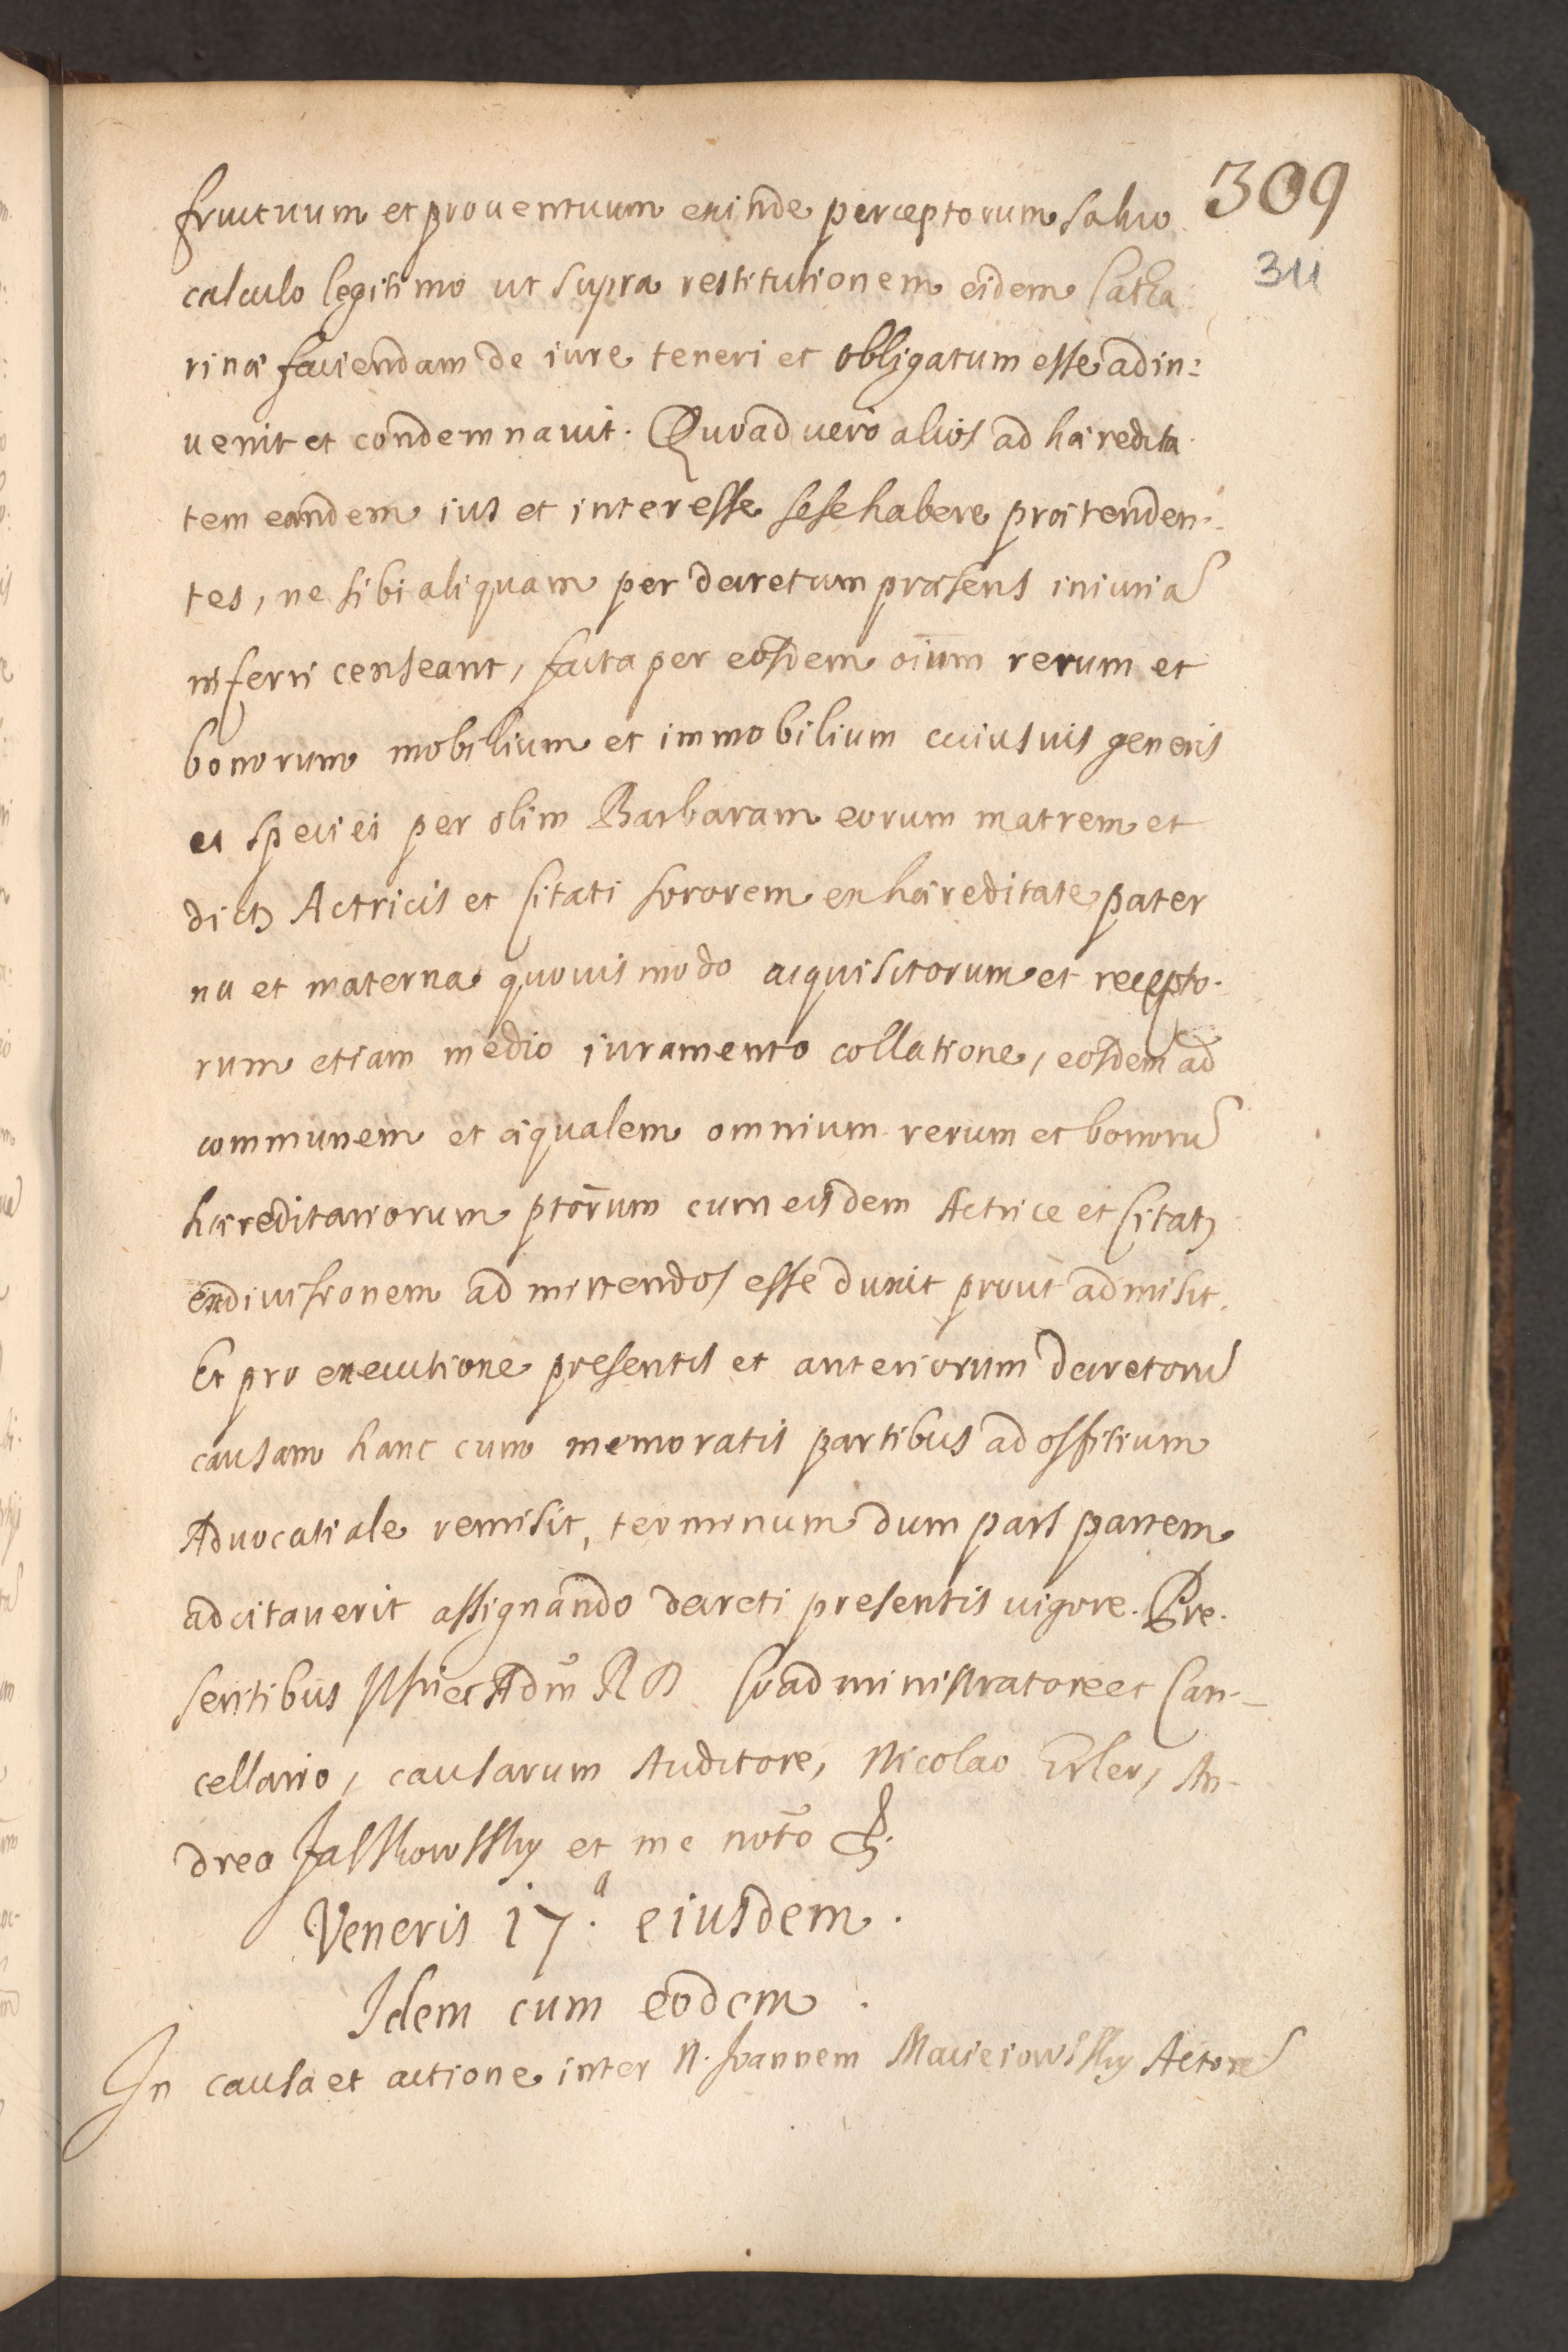 309
311
fructuum et prouentuum exinde perceptorum saluo
calculo legitimo ut supra restitutionem eidem Catha
rinæ faciendam de iure teneri et obligatum esse adin:
uenit et condemnauit. Quoad uero alios ad hæredita
tem eandem ius et interesse sese habere prætenden:
tes, ne sibi aliquam per decretum præsens iniuriā
inferri censeant, facta per eosdem oīum rerum et
bonorum mobilium et immobilium cuiusuis generis
et speciei per olim Barbaram eorum matrem et
dictȝ Actricis et Citati sororem ex hæreditate pater
na et materna quouis modo acquisitorum et recepto.
rum etiam medio iuramento collatione, eosdem ad
communem et æqualem omnium rerum et bonorū
hæreditariorum ptōrum cum eisdem Actrice et Citatȝ
exdiuisionem admittendos esse duxit prout admisit.
Et pro executione presentis et anteriorum decretorū
causam hanc cum memoratis partibus ad offitium
Aduocatiale remisit, terminum dum pars partem
adcitauerit assignando decreti presentis uigore. Pre.
sentibus et Adm R D Coadministratore et Can-
cellario, causarum Auditore, Nicolao Erler, An-
drea Jasskowsky et me notō
Veneris 17.ª eiusdem.
Idem cum eodem.
In causa et actione inter N. Joannem Macieiowsky Actorē